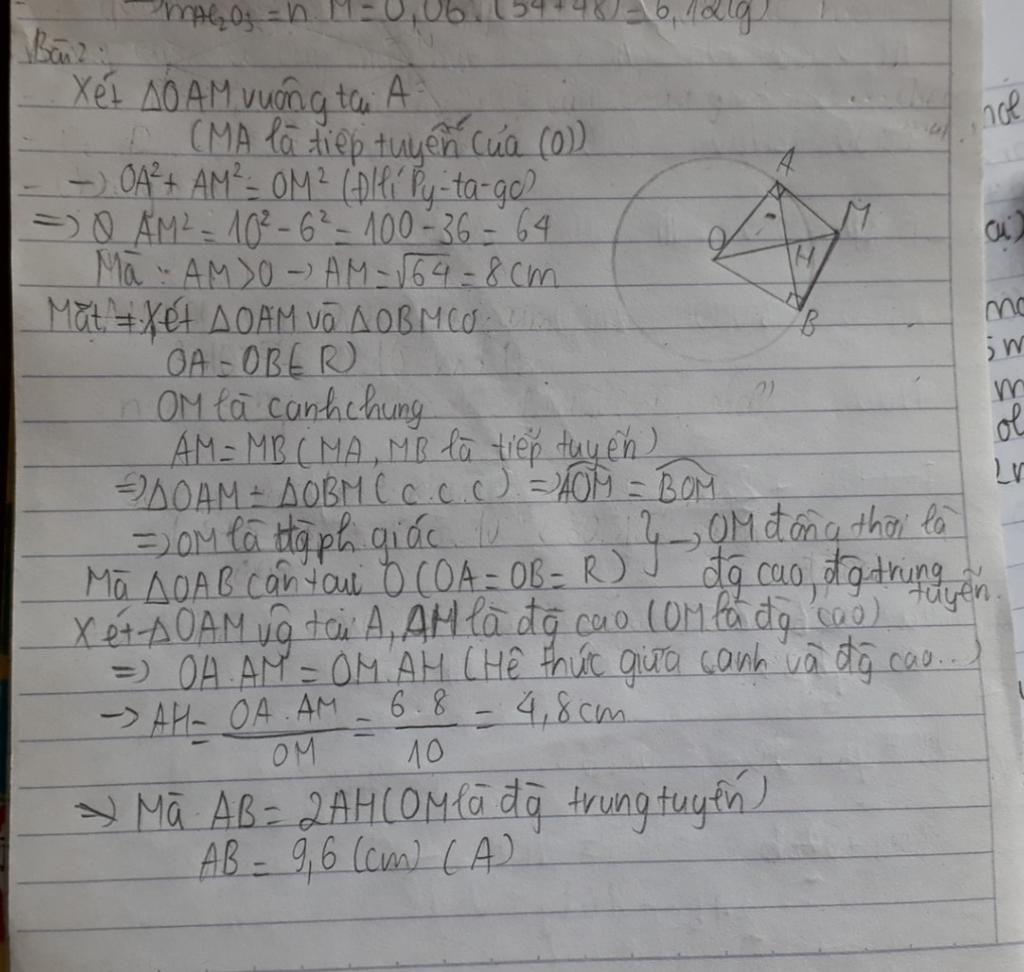 → mAl2O3 = n.M = 0,06.(54+48) = 6,12(g)
Bài 2:
Xét ΔOAM vuông tại A
(MA là tiếp tuyến của (O))
→ OA² + AM² = OM² (Đlí Py-ta-go)
=> AM² = 10² - 6² = 100 - 36 = 64
Mà: AM > 0 → AM = √64 = 8cm
Mặt ≠ Xét ΔOAM và ΔOBM có:
OA = OB (= R)
OM là cạnh chung
AM = MB (MA, MB là tiếp tuyến)
=> ΔOAM = ΔOBM (c.c.c) => AOM = BOM
=> OM là đg ph giác } → OM đồng thời là
Mà ΔOAB cân tại O (OA = OB = R) đg cao, đg trung tuyến.
Xét ΔOAM vg tại A, AH là đg cao (OM là đg cao)
=> OA.AM = OM.AH (Hệ thức giữa cạnh và đg cao...)
→ AH = OA.AM / OM = 6.8 / 10 = 4,8cm
→ Mà AB = 2AH (OM là đg trung tuyến)
AB = 9,6 (cm) (A)
A
O
H
M
B